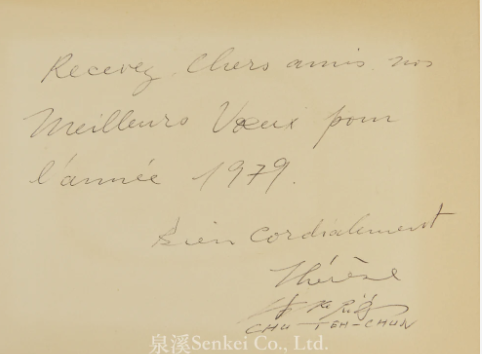 Recevez Chers amis nos
Meilleurs Vœux pour
l'année 1979.
Bien cordialement
Thérèse
朱德群
CHU TEH-CHUN
泉溪Senkei Co., Ltd.